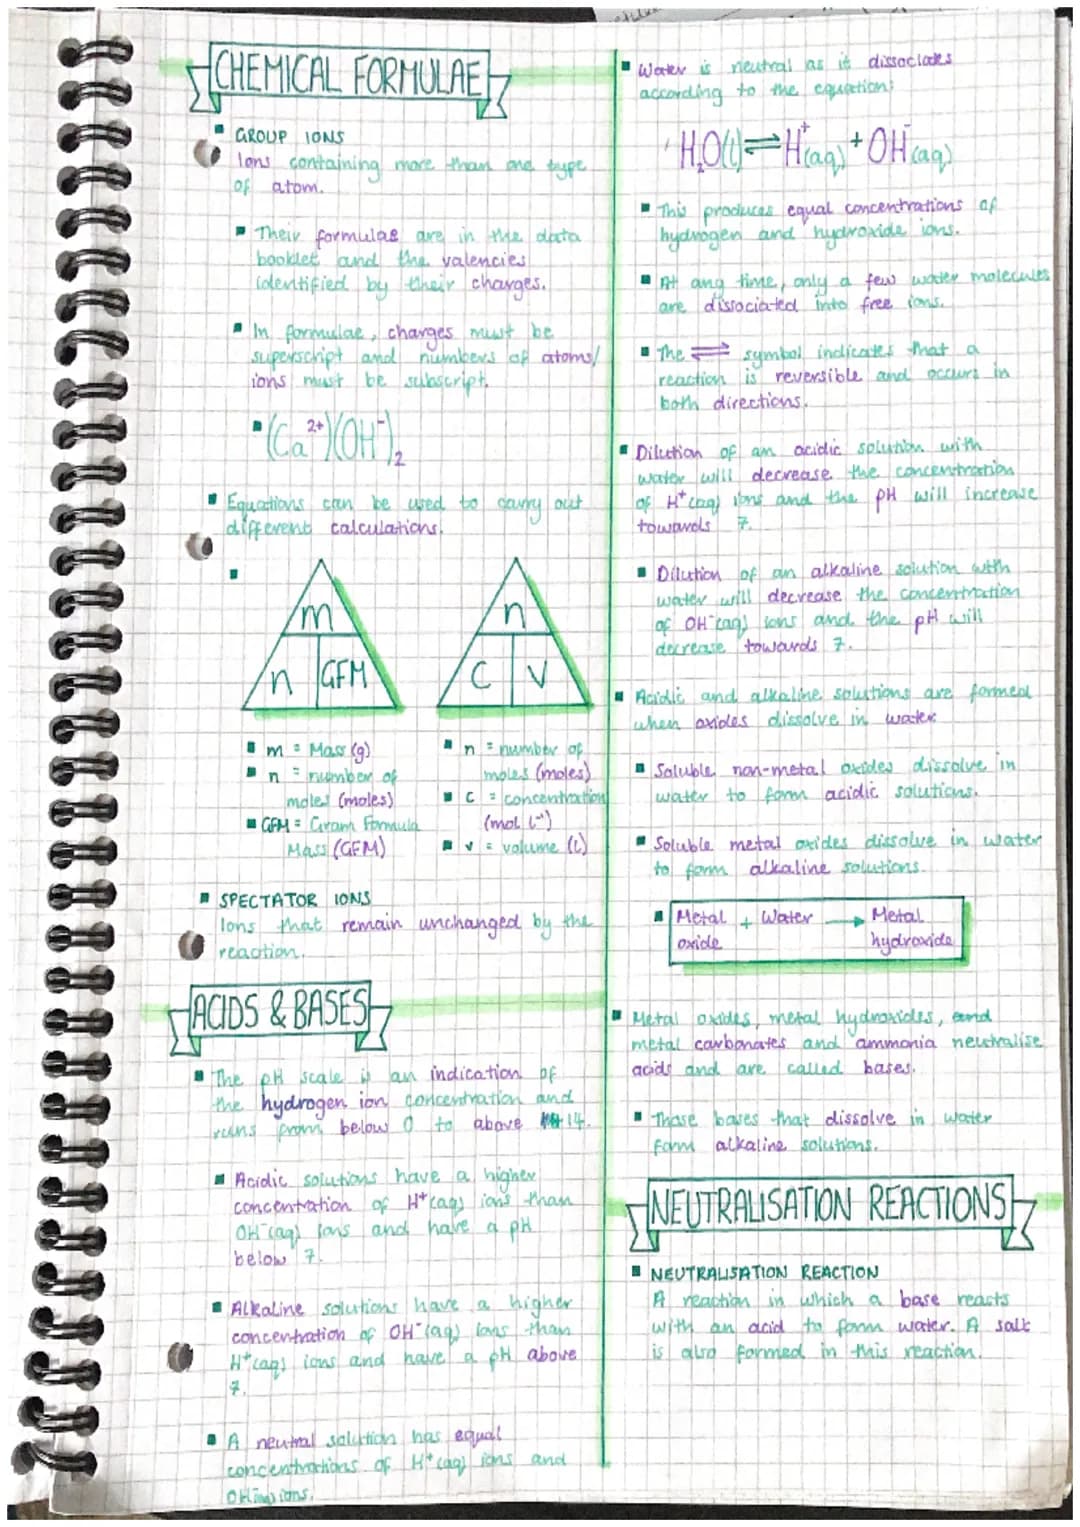 CHEMICAL FORMULAE
GROUP IONS
Ions containing more than one type
of atom.
Their formulae are in the data
booklet and the valencies
identified by their charges.
In formulae, charges must be
superscript and numbers of atoms/
ions must be subscript.
(Ca²⁺)(OH⁻)₂
Equations can be used to carry out
different calculations.
m
n GFM
n
C V
m = Mass (g)
n = number of
moles (moles)
GFM = Gram Formula
Mass (GFM)
n = number of
moles (moles)
C = concentration
(mol l⁻¹)
v = volume (l)
SPECTATOR IONS
Ions that remain unchanged by the
reaction.
ACIDS & BASES
The pH scale is an indication of
the hydrogen ion concentration and
runs from below 0 to above 14.
Acidic solutions have a higher
concentration of H⁺(aq) ions than
OH⁻(aq) ions and have a pH
below 7.
Alkaline solutions have a higher
concentration of OH⁻(aq) ions than
H⁺(aq) ions and have a pH above
7.
A neutral solution has equal
concentrations of H⁺(aq) ions and
OH⁻(aq) ions.
Water is neutral as it dissociates
according to the equation:
H₂O(l) ⇌ H⁺(aq) + OH⁻(aq)
This produces equal concentrations of
hydrogen and hydroxide ions.
At any time, only a few water molecules
are dissociated into free ions.
The ⇌ symbol indicates that a
reaction is reversible and occurs in
both directions.
Dilution of an acidic solution with
water will decrease the concentration
of H⁺(aq) ions and the pH will increase
towards 7.
Dilution of an alkaline solution with
water will decrease the concentration
of OH⁻(aq) ions and the pH will
decrease towards 7.
Acidic and alkaline solutions are formed
when oxides dissolve in water.
Soluble non-metal oxides dissolve in
water to form acidic solutions.
Soluble metal oxides dissolve in water
to form alkaline solutions.
Metal + Water → Metal
oxide hydroxide
Metal oxides, metal hydroxides, and
metal carbonates and ammonia neutralise
acids and are called bases.
Those bases that dissolve in water
form alkaline solutions.
NEUTRALISATION REACTIONS
NEUTRALISATION REACTION
A reaction in which a base reacts
with an acid to form water. A salt
is also formed in this reaction.